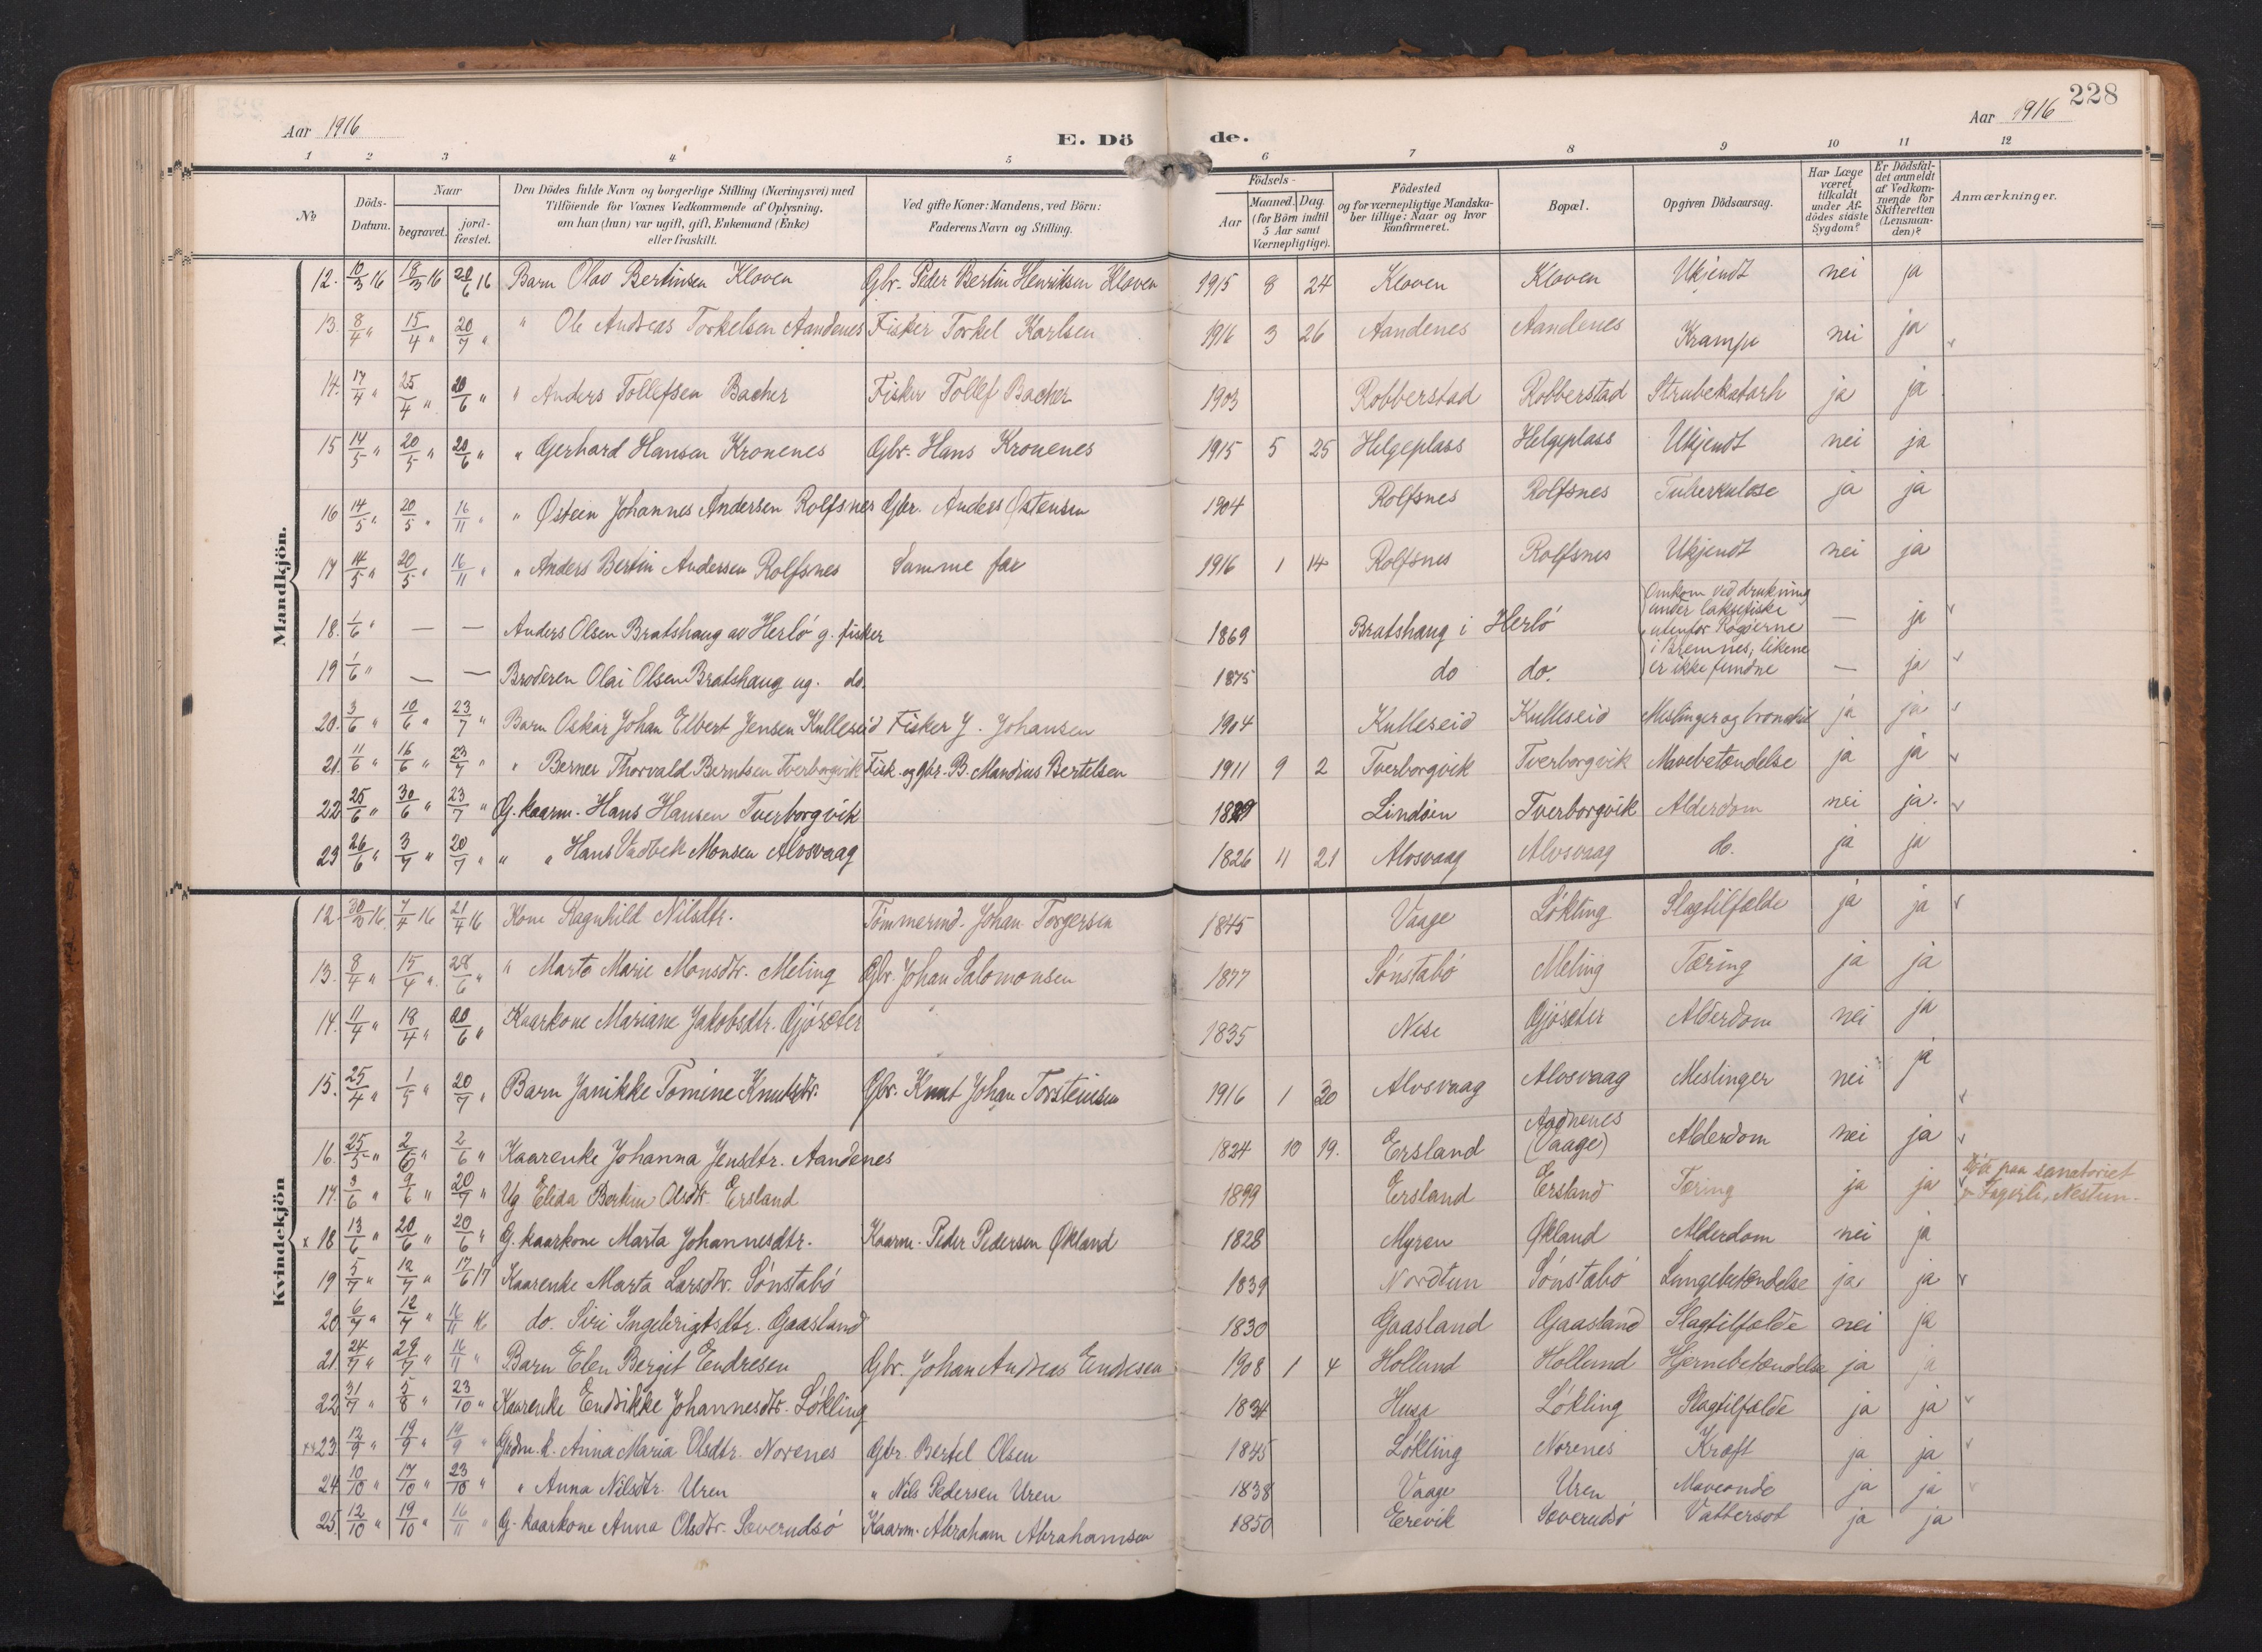 228
Aar 1916
Aar 1916
E. Dö de.
1 2 3 4 5 6 7 8 9 10 11 12
No
Döds-Datum.
Naar
begravet.
jord-fæstet.
Den Dödes fulde Navn og borgerlige Stilling (Næringsvei) med
Tilföiende for Voxnes Vedkommende af Oplysning,
om han (hun) var ugift, gift, Enkemand (Enke)
eller fraskilt.
Ved gifte Koner: Mandens, ved Börn:
Faderens Navn og Stilling.
Födsels-
Aar
Maaned. Dag.
(for Börn indtil
5 Aar samt
Værnepligtige).
Födested
og for værnepligtige Mandska-
ber tillige: Naar og hvor
konfirmeret.
Bopæl.
Opgiven Dödsaarsag.
Har Læge
været
tilkaldt
under Af-
dödes sidste
Sygdom?
Er Dödsfal-
det anmeldt
af Vedkom-
mende for
Skifteretten
(Lensman-
den)?
Anmærkninger.
Mandkjön.
12. 10/3 16 18/3 16 20/6 16 Barn Olav Bertinsen Kloven Gbr. Peder Bertin Henriksen Kloven 1915 8 24 Kloven Kloven Ukjendt nei ja
13. 8/4 " 15/4 " 20/7 " " Ole Andreas Torkelsen Aandenes Fisker Torkel Karlsen 1916 3 26 Aandenes Aandenes Krampe nei ja
14. 17/4 " 25/4 " 20/6 " " Anders Tollefsen Bacher Fisker Tollef Bacher 1903 Robberstad Robberstad Strubekatarh ja ja
15 14/5 " 20/5 " 20/6 " " Gerhard Hansen Kronenes Gbr. Hans Kronenes 1915 5 25 Helgeplass Helgeplass Ukjendt nei ja
16 14/5 " 20/5 " 16/11 " " Østein Johannes Andersen Rolfsnes Gbr. Anders Østensen 1904 Rolfsnes Rolfsnes Tuberkulose ja ja
17 14/5 " 20/5 " 16/11 " " Anders Bertin Andersen Rolfsnes Samme far 1916 1 14 Rolfsnes Rolfsnes Ukjendt nei ja
18. 1/6 " — — Anders Olsen Bratshaug av Herlö g. fisker 1869 Bratshaug i Herlö Omkom ved drukning
under laksefiske
utenfor Røgøerne
i Bremnes, likene
er ikke fundne — ja
19 1/6 " — — Broderen Olai Olsen Bratshaug ug. do. 1875 do do. — ja
20. 3/6 " 10/6 " 23/7 " Barn Oskar Johan Elbert Jensen Kulleseid Fisker J. Johansen 1904 Kulleseid Kulleseid Meslinger og bronchit ja ja
21. 11/6 " 16/6 " 23/7 " " Berner Thorvald Berntsen Tverborgvik Fisk. og gbr. B. Mandius Bertelsen 1911 9 2 Tverborgvik Tverborgvik Mavebetændelse ja ja
22 25/6 " 30/6 " 23/7 " G. kaarm. Hans Hansen Tverborgvik Lindøen Tverborgvik Alderdom nei ja.
23 26/6 " 3/7 " 20/7 " " " Hans Vadbek Monsen Alvsvaag 1826 4 21 Alvsvaag Alvsvaag do. ja ja
Kvindekjön
12. 30/3 16. 7/4 16 21/4 16 Kone Ragnhild Nilsdtr. Tömmermd. Johan Torgersen 1845 Vaage Løkling Slagtilfælde ja ja
13. 8/4 " 15/4 " 28/6 " " Marta Marie Monsdtr. Meling Gbr. Johan Salomonsen 1877 Sønstabø Meling Tæring ja ja
14. 11/4 " 18/4 " 20/6 " Kaarkone Mariane Jakobsdtr. Gjøsæter 1835 Nese Gjøsæter Alderdom nei ja
15. 25/4 " 1/5 " 20/7 " Barn Janikke Tomine Knutsdtr. Gbr. Knut Johan Torsteinsen 1916 1 30 Alvsvaag Alvsvaag Meslinger nei ja
16. 25/5 " 2/6 " 2/6 " Kaarenke Johanna Jensdtr. Aandenes 1824 10 19. Ersland Aadnenes (Vaage) Alderdom nei ja
17. 3/6 " 9/6 " 20/7 " Ug Elida Bertine Olsdtr. Ersland 1899 Ersland Ersland Tæring ja ja Døde paa sanatoriet
Fagerli, Nestun.
x 18 13/6 " 20/6 " 20/6 " G. kaarkone Marta Johannesdtr. Kaarm. Peder Pedersen Økland 1828 Myren Økland Alderdom nei ja
19 5/7 " 12/7 " 17/6 17 Kaarenke Marta Larsdtr. Sønstabø 1839 Nordtun Sønstabø Lungebetændelse ja ja
20 6/7 " 12/7 " 16/11 16 do. Siri Ingebrigtsdtr. Gaasland 1830 Gaasland Gaasland Slagtilfælde nei ja
21. 24/7 " 29/7 " 16/11 " Barn Elen Bergit Endresen Gbr. Johan Andreas Endresen 1908 1 4 Hollund Hollund Hjernebetændelse ja ja
22 31/7 " 5/8 " 23/10 " Kaarenke Endrikke Johannesdtr. Løkling 1834 Husa Løkling Slagtilfælde ja ja
23. 12/9 " 19/9 " 19/9 " Grdm. k. Anna Maria Olsdtr. Norenes Gbr. Bertel Olsen 1845 Løkling Norenes Kræft ja ja
24. 10/10 " 17/10 " 23/10 " " Anna Nilsdtr. Uren " Nils Pedersen Uren 1838 Vaage Uren Maveonde ja ja
25. 12/10 " 19/10 " 16/11 " G. kaarkone Anna Olsdtr. Særerudsø Kaarm. Abraham Abrahamsen 1850 Eerevik Vattersot ja ja